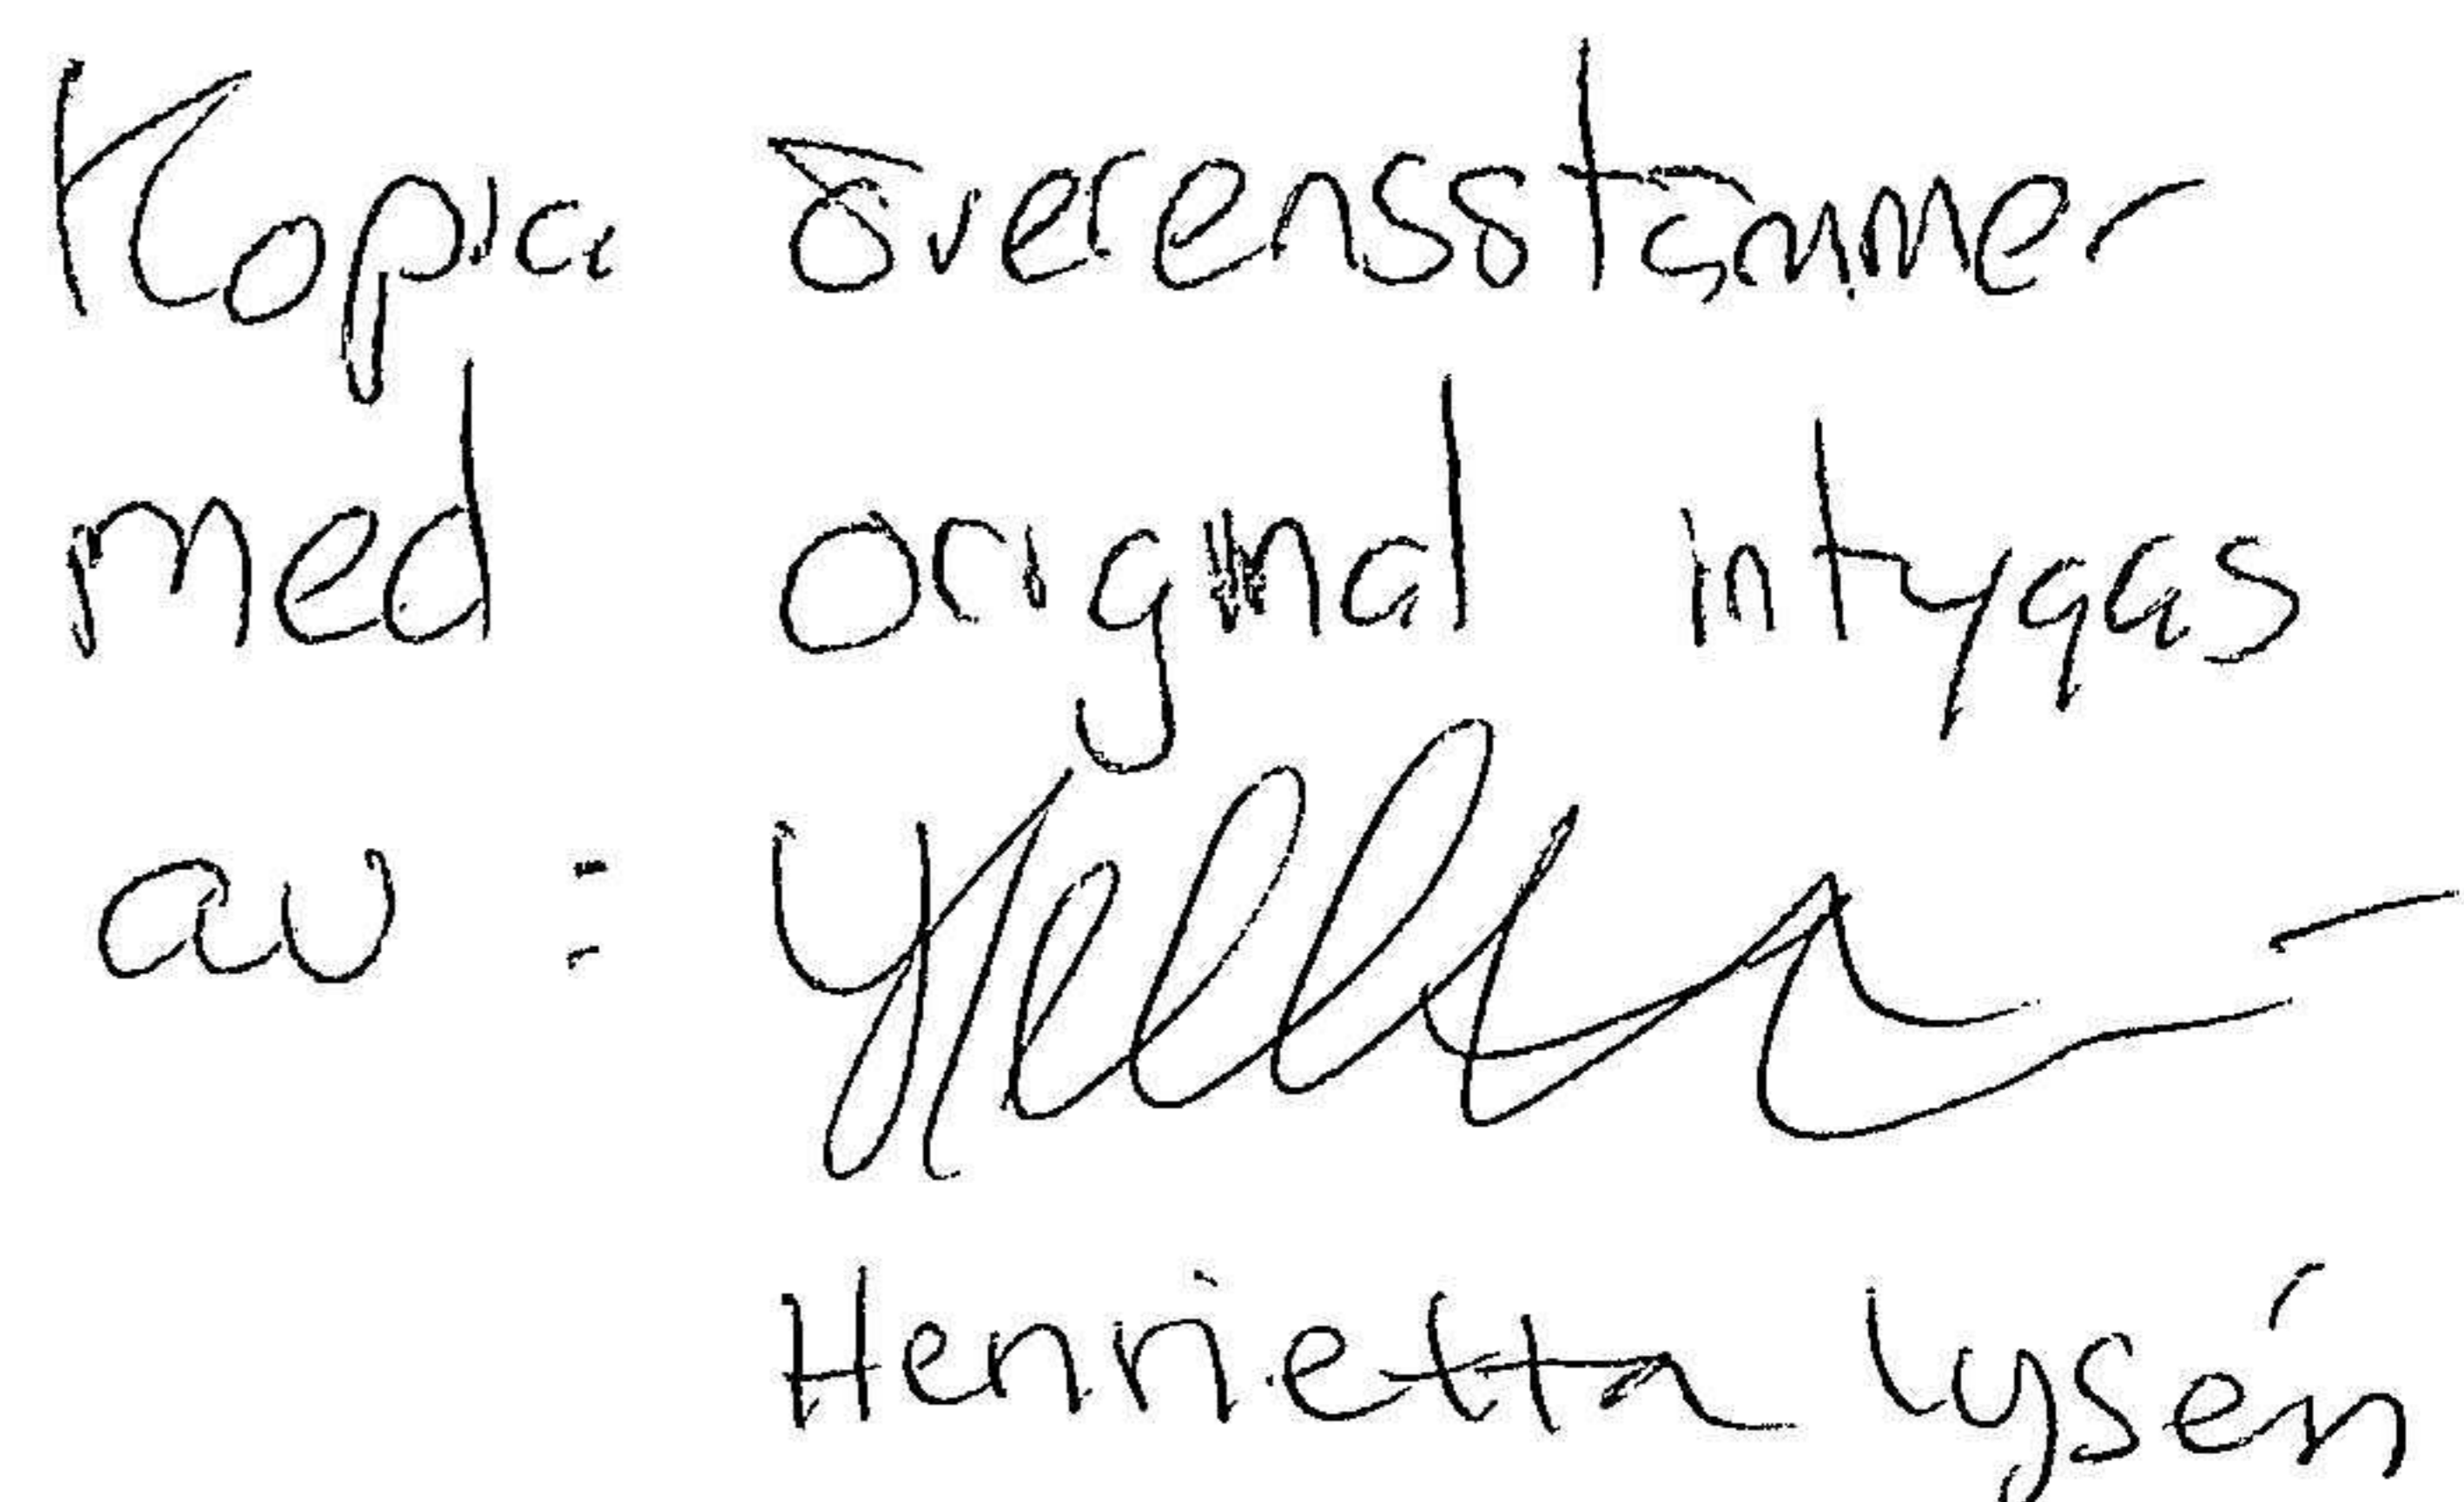 Kopia överensstämmer
med original intygas
av :
Henrietta Lysén